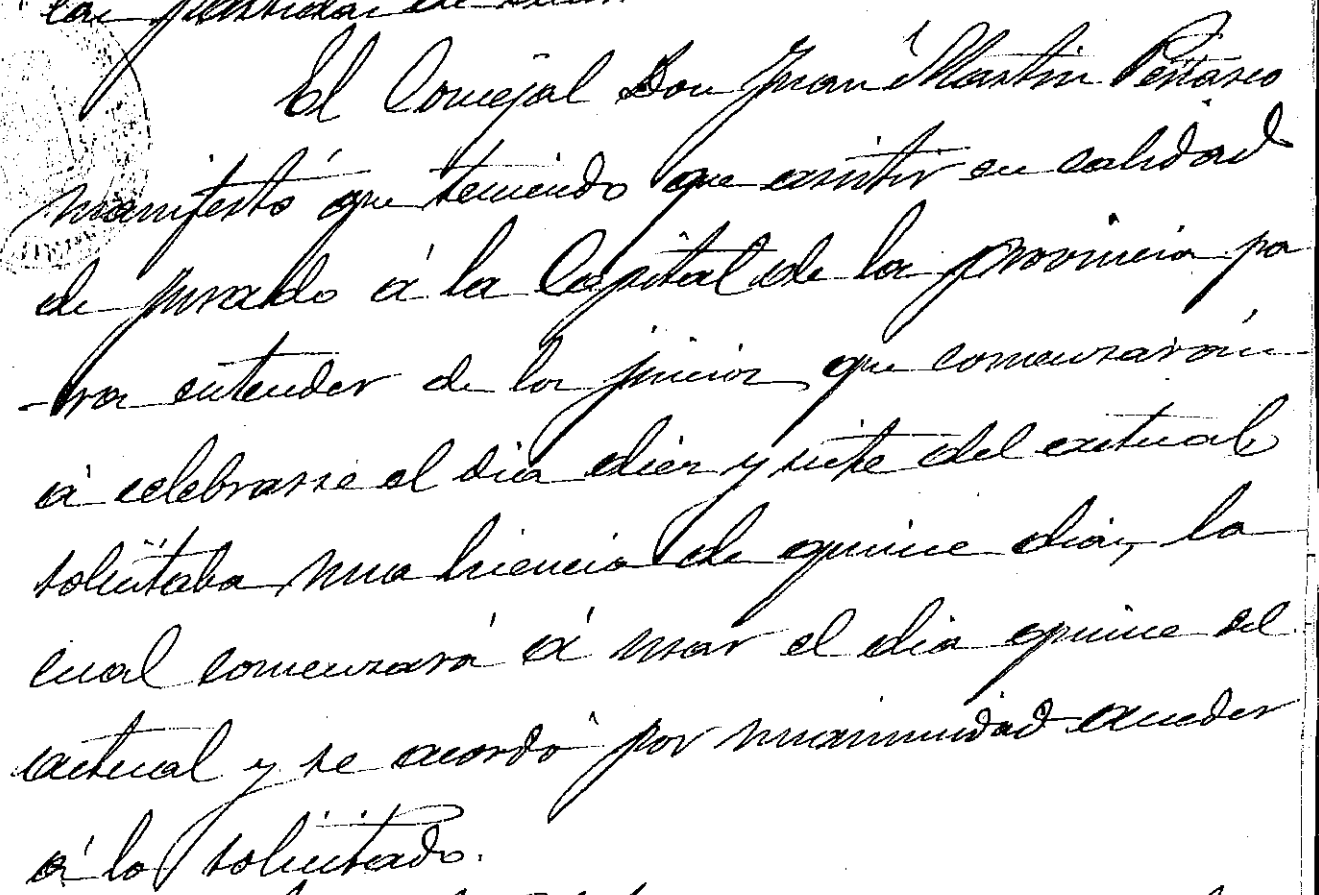 El Concejal Don Juan Martin Peñasco
manifestó que teniendo que asistir en calidad
de jurado á la Capital de la provincia pa
-ra entender de los juicios que comenzarán
á celebrarse el dia diez y siete del actual
solicitaba una licencia de quince dias, la
cual comenzará á usar el dia quince del
actual y se acordó por unanimidad acceder
á lo solicitado.